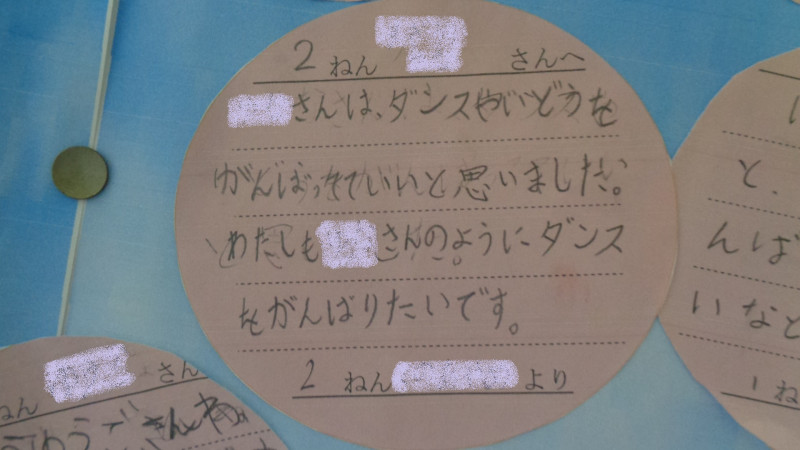 2 ねん さんへ
さんは、ダンスやいどうを
がんばっていいと思いました。
わたしも さんのようにダンス
をがんばりたいです。
2 ねん より
ねん さん
と、
んば
いなと
1 ね